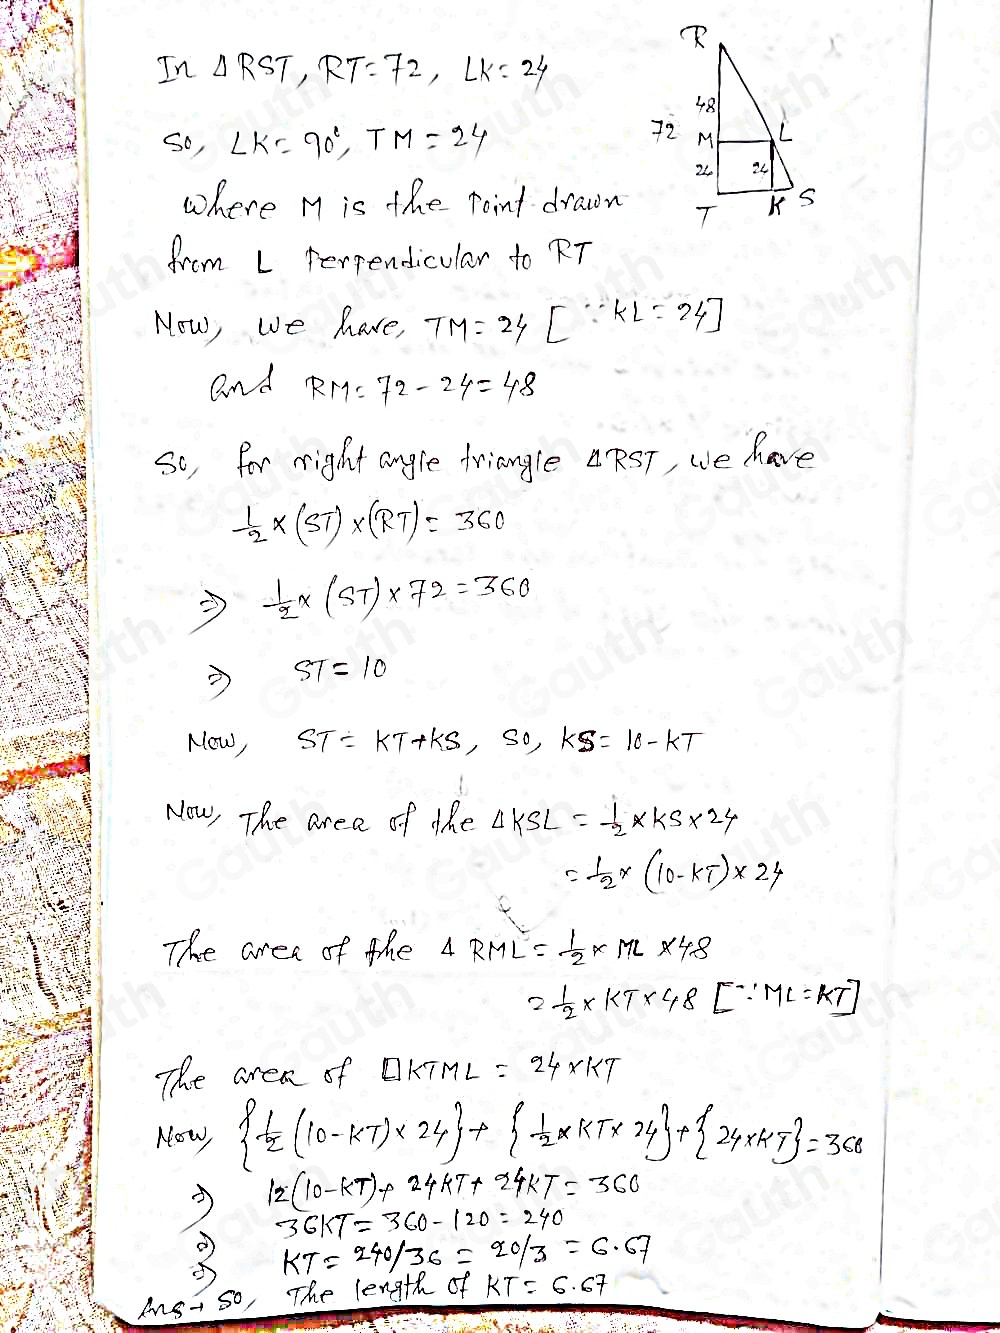 In Δ RST, RT = 72, LK = 24
So, ∠K = 90°, TM = 24
where M is the Point drawn
from L Perpendicular to RT
Now, we have, TM = 24 [∵ KL = 24]
and RM = 72 - 24 = 48
So, for right angle triangle Δ RST, we have
1/2 × (ST) × (RT) = 360
⇒ 1/2 × (ST) × 72 = 360
⇒ ST = 10
Now, ST = KT + KS, So, KS = 10 - KT
Now, The area of the Δ KSL = 1/2 × KS × 24
= 1/2 × (10 - KT) × 24
The area of the Δ RML = 1/2 × ML × 48
= 1/2 × KT × 48 [∵ ML = KT]
The area of □ KTML = 24 × KT
Now, {1/2 (10 - KT) × 24} + {1/2 × KT × 24} + {24 × KT} = 360
⇒ 12(10 - KT) + 24KT + 24KT = 360
⇒ 36KT = 360 - 120 = 240
⇒ KT = 240/36 = 20/3 = 6.67
Ans → So, The length of KT = 6.67
R
48
72 M L
24 24
T K S
Gauth